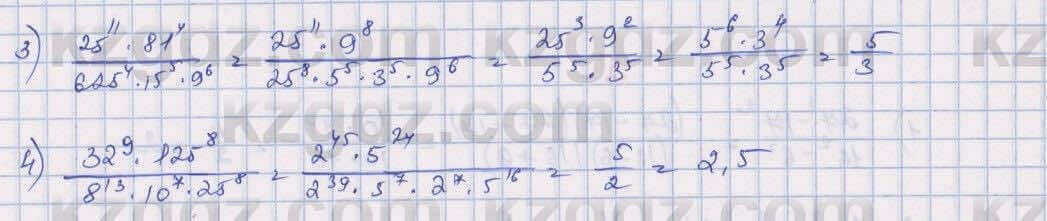 3) \frac{25^{11} \cdot 81^4}{625^4 \cdot 15^5 \cdot 9^6} = \frac{25^{11} \cdot 9^8}{25^8 \cdot 5^5 \cdot 3^5 \cdot 9^6} = \frac{25^3 \cdot 9^2}{5^5 \cdot 3^5} = \frac{5^6 \cdot 3^4}{5^5 \cdot 3^5} = \frac{5}{3}
4) \frac{32^9 \cdot 125^8}{8^{13} \cdot 10^7 \cdot 25^8} = \frac{2^{45} \cdot 5^{24}}{2^{39} \cdot 5^7 \cdot 2^7 \cdot 5^{16}} = \frac{5}{2} = 2,5
kzgdz.com